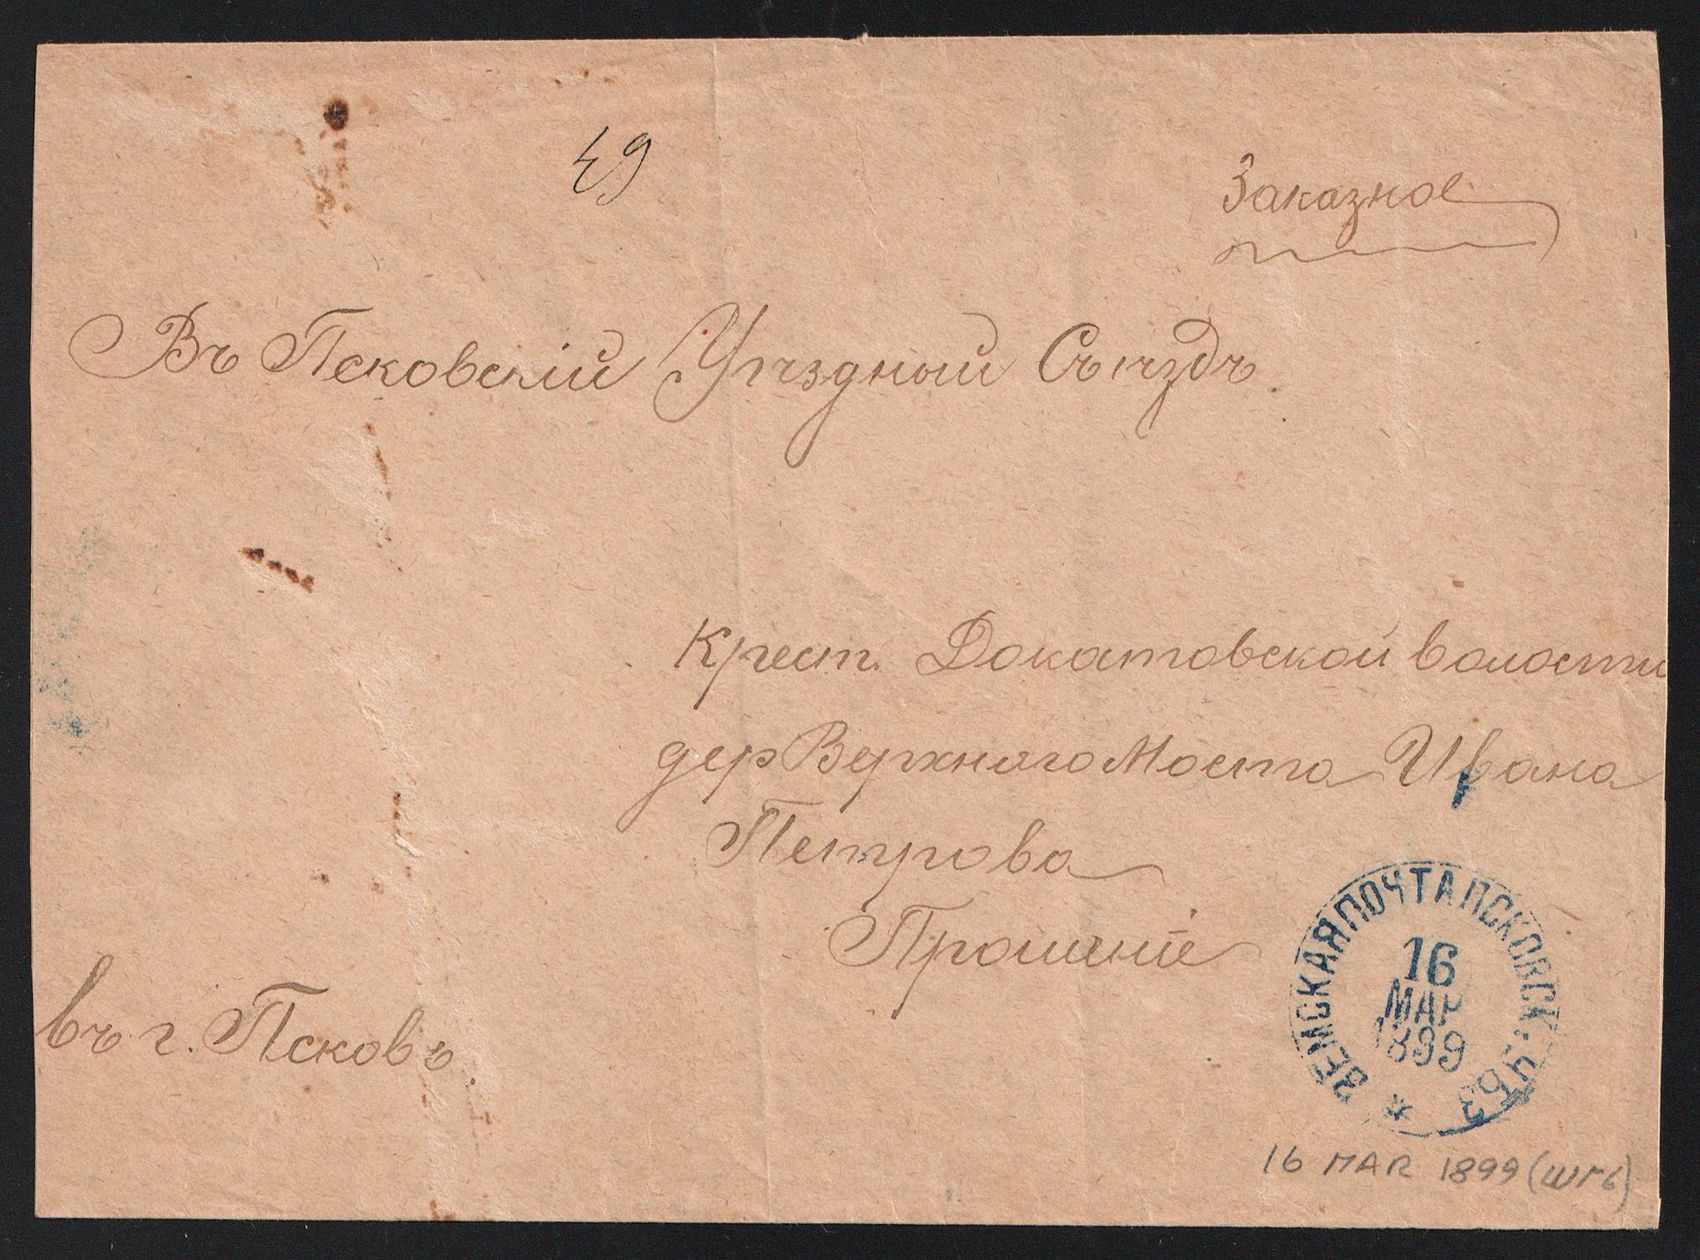 49
Заказное
Въ Псковскій Уѣздный Съѣздъ.
Крест. Докатовской волости
дер Верхняго Моста Ивана
Петрова
Прошеніе
въ г. Псковъ.
ЗЕМСКАЯ ПОЧТА ПСКОВСК. УѢЗ *
16
МАР
1899
16 MAR 1899 (ШГ6)